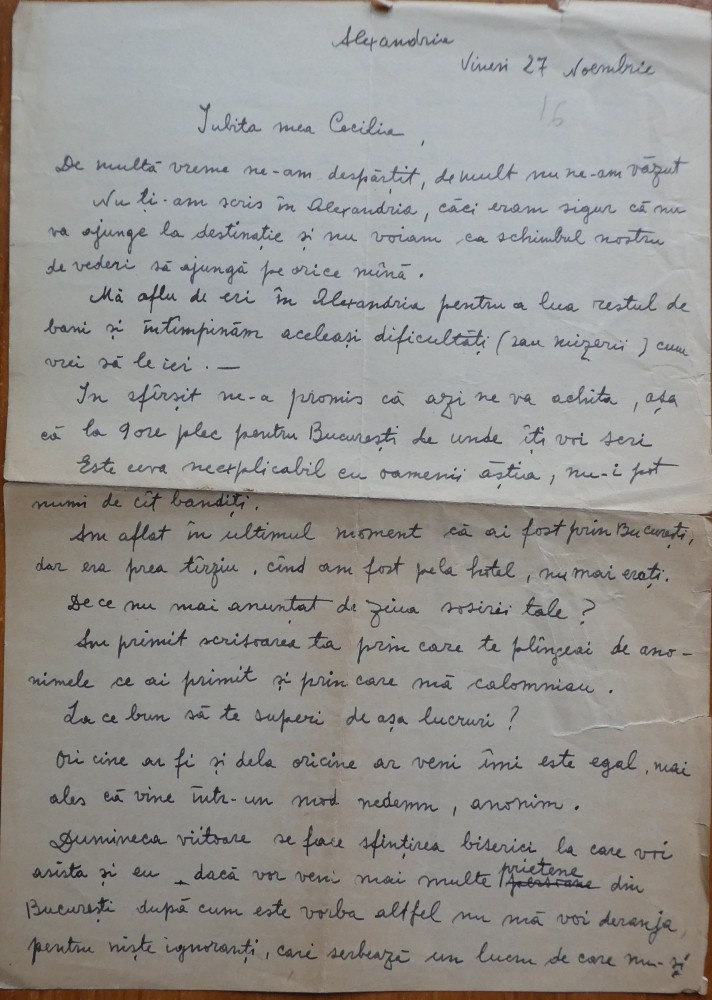 Alexandria
Vineri 27 Noembrie
16
Iubita mea Cecilia,
De multă vreme ne-am despărțit, de mult nu ne-am văzut
Nu ți-am scris în Alexandria, căci eram sigur că nu
va ajunge la destinație și nu voiam ca schimbul nostru
de vederi să ajungă pe orice mînă.
Mă aflu de eri în Alexandria pentru a lua restul de
bani și întîmpinăm aceleași dificultăți (sau mizerii) cum
vrei să le iei. —
In sfîrșit ne-a promis că azi ne va achita, așa
că la 9 ore plec pentru București de unde îți voi scri
Este ceva neexplicabil cu oamenii ăștia, nu-i pot
numi de cît bandiți.
Am aflat în ultimul moment că ai fost prin București,
dar era prea tîrziu, cînd am fost pela hotel, nu mai erați.
De ce nu mai anunțat de ziua sosirei tale?
Am primit scrisoarea ta prin care te plîngeai de ano-
nimele ce ai primit și prin care mă calomniau.
La ce bun să te superi de așa lucruri?
Ori cine ar fi și dela oricine ar veni îmi este egal, mai
ales că vine într-un mod nedemn, anonim.
Dumineca viitoare se face sfințirea biserici la care voi
prietene
asista și eu dacă vor veni mai multe persoane din
București după cum este vorba altfel nu mă voi deranja,
pentru niște ignoranți, cari serbează un lucru de care nu-și